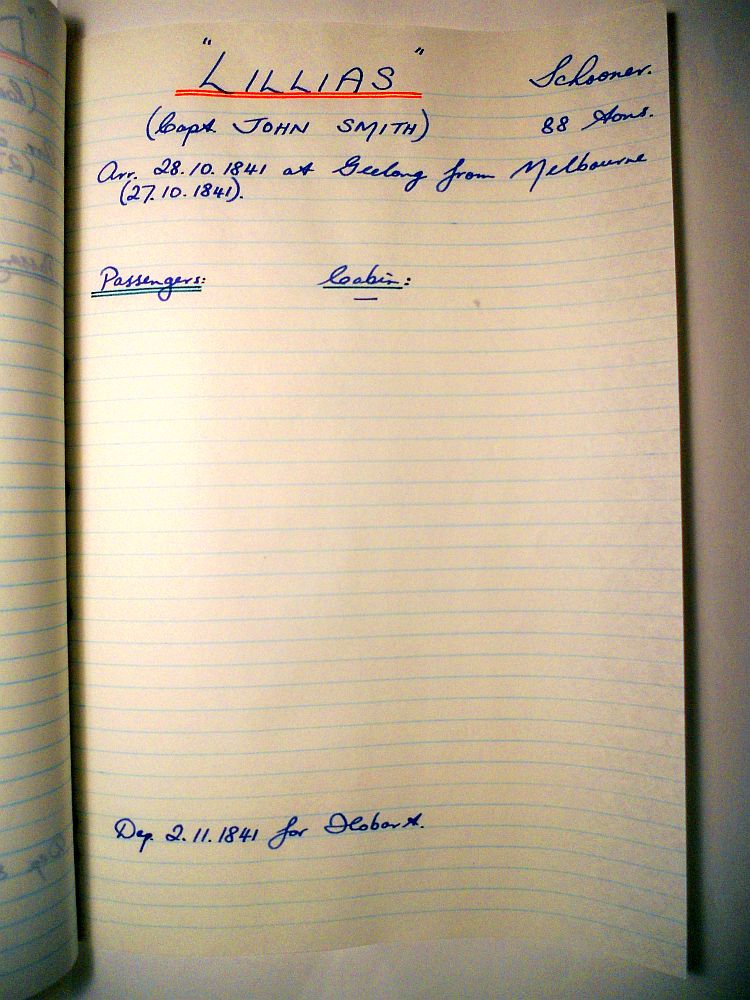 "LILLIAS" Schooner.
(Capt. JOHN SMITH) 88 tons.
Arr. 28.10.1841 at Geelong from Melbourne
(27.10.1841).
Passengers: Cabin:
—
Dep. 2.11.1841 for Hobart.